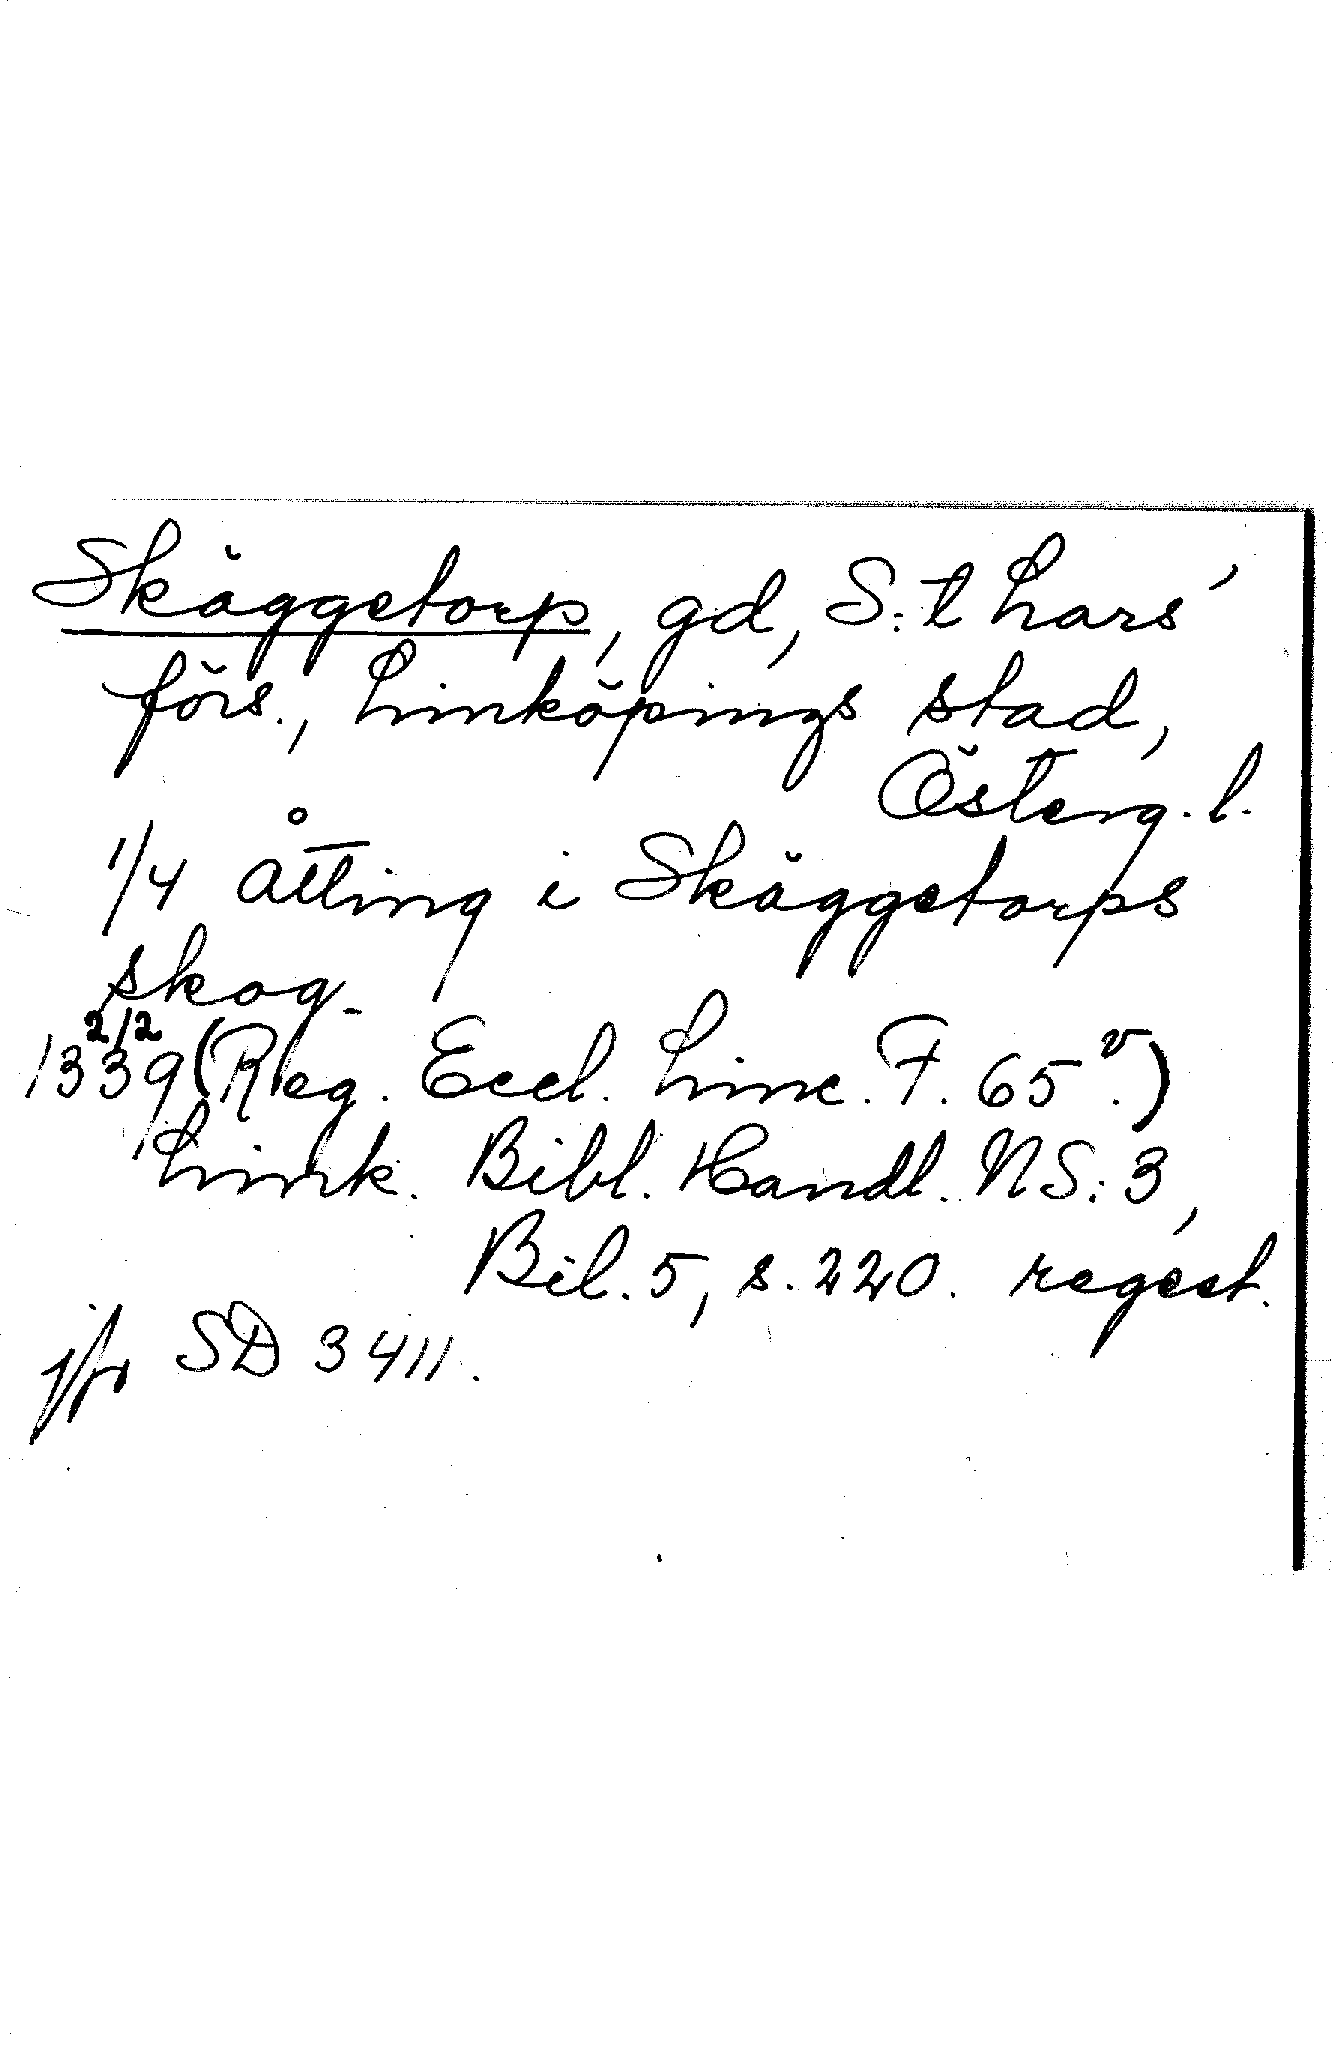 Skäggetorp, gd, S:t Lars'
förs., Linköpings stad,
Österg. l.
1/4 åtting i Skäggetorps
skog.
1339 2/2 (Reg. Eccl. Linc. F. 65 v.)
Link. Bibl. Handl. NS: 3,
Bil. 5, s. 220. regest.
jfr SD 3411.